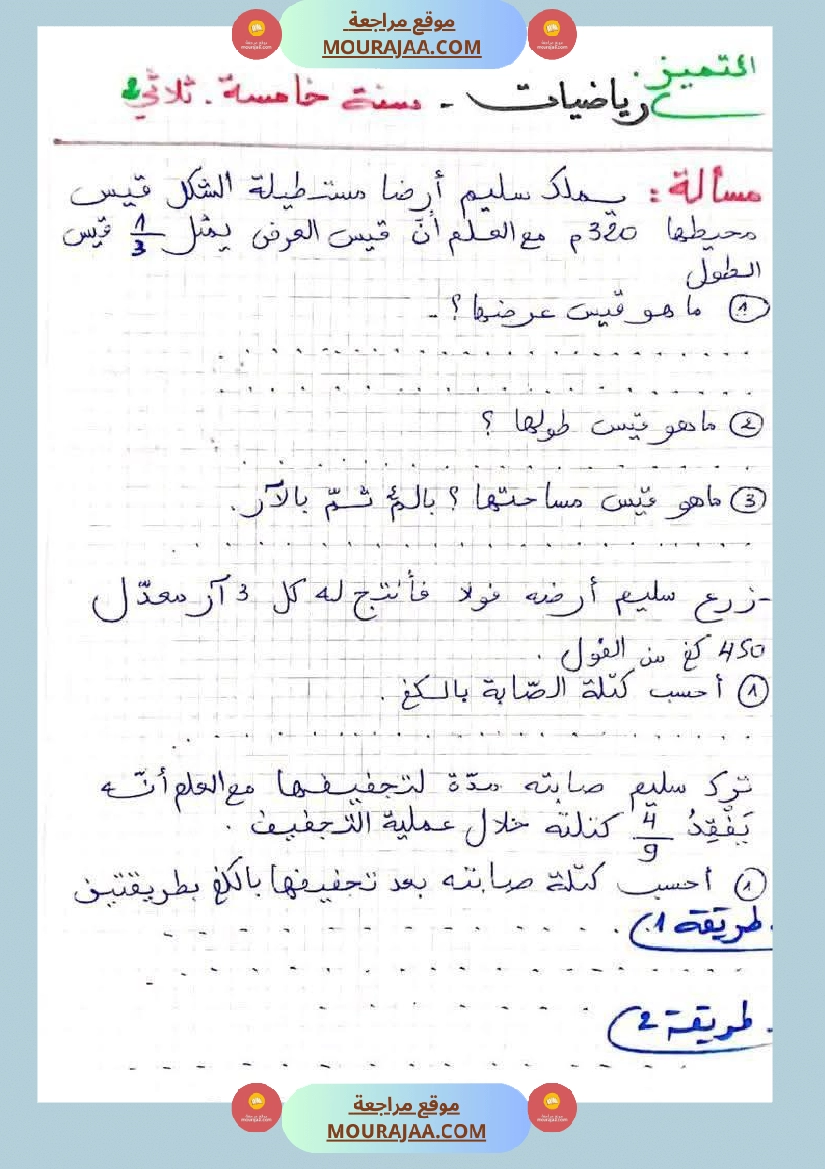 موقع مراجعة
MOURAJAA.COM
المتميز.
رياضيات - سنة خامسة. ثلاثي 2
مسألة: يملك سليم أرضا مستطيلة الشكل قيس
محيطها 320 م مع العلم أنّ قيس العرض يمثل 1/3 قيس
الطول
① ما هو قيس عرضها؟
② ماهو قيس طولها ؟
③ ماهو قيس مساحتها ؟ بالم² ثمّ بالآر.
- زرع سليم أرضه فولا فأنتج له كل 3 آر معدّل
450 كغ من الفول.
① أحسب كتلة الصّابة بالكغ.
ترك سليم صابته مدّة لتجفيفها مع العلم أنّه
يَفْقِدُ 4/9 كتلته خلال عملية التّجفيف.
① أحسب كتلة صابته بعد تجفيفها بالكغ بطريقتين
طريقة 1
طريقة 2
موقع مراجعة
MOURAJAA.COM